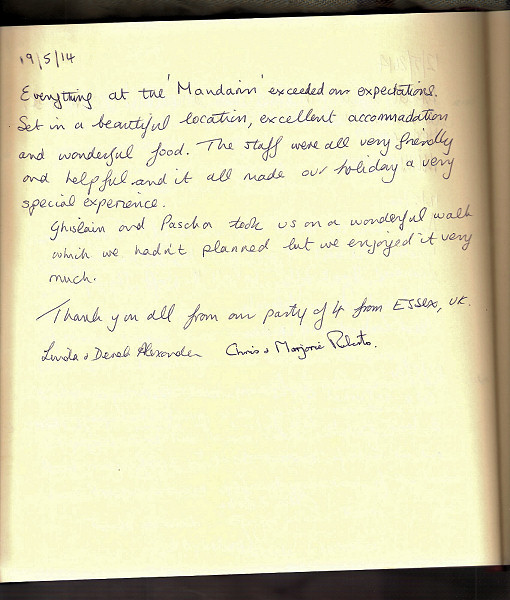 19/5/14
Everything at the 'Mandarin' exceeded our expectations.
Set in a beautiful location, excellent accommadation
and wonderful food. The staff were all very friendly
and helpful and it all made our holiday a very
special experience.
Ghislain and Pascha took us on a wonderful walk
which we hadn't planned but we enjoyed it very
much.
Thank you all from our party of 4 from ESSEX, UK.
Linda & Derek Alexander Chris & Marjorie Roberts.